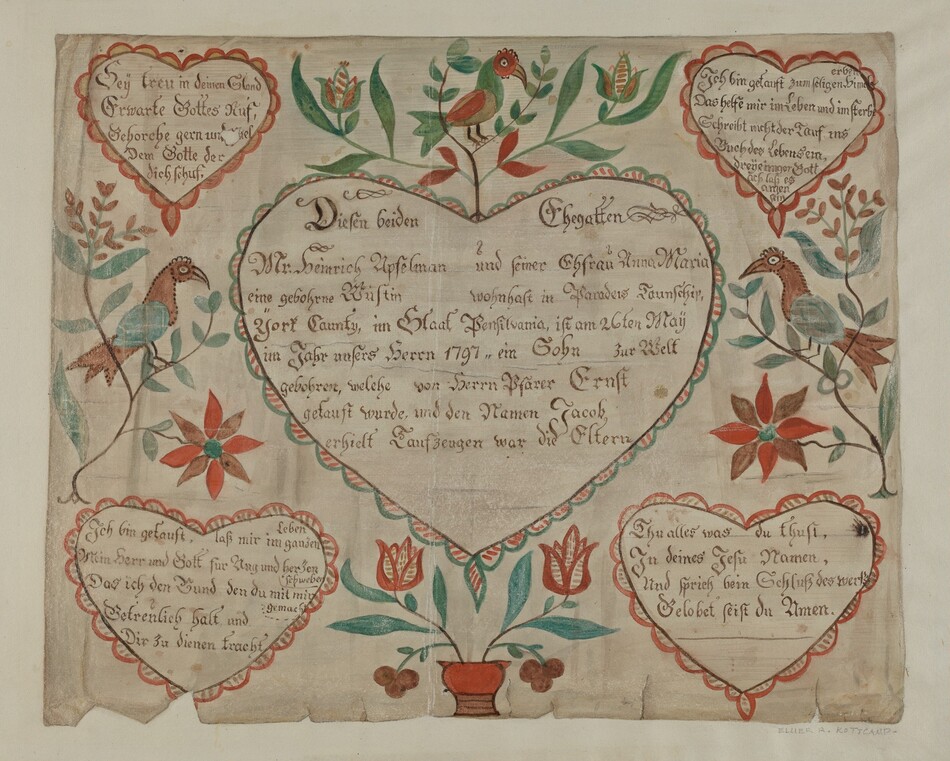 Sey treu in deinem Stand
Erwarte Gottes Ruf,
Gehorche gern und
Dem Gotte der
dich schuf.
erben
Ich bin getauft zum seligen Himel
Das helfe mir im Leben und im sterb
Schreibt nicht der Tauf ins
Buch des Lebens ein,
dreyeiniger Gott
Diesen beiden Ehegatten
Mr. Heinrich Upfelman und seiner Ehfrau Anna Maria
eine gebohrne Wüstin wohnhaft in Paradeis Taunschip,
York Caunty, im Staat Pensilvania, ist am 26ten May
im Jahr unsers Herrn 1797 „ ein Sohn zur Welt
gebohren, welche von Herrn Pfärer Ernst
getauft wurde, und den Namen Jacob,
erhielt Taufzeugen war die Eltern
Ich bin getauft, laß mir im ganden
Leben
Mein Herr und Gott für Aug und herzen
schweben
Das ich den Bund den du mit mir
gemacht
Getreulich halt und
Dir zu dienen tracht
Thu alles was du thust,
In deines Jesu Namen,
Und sprich bein Schluß des werks
Gelobet seist du Amen.